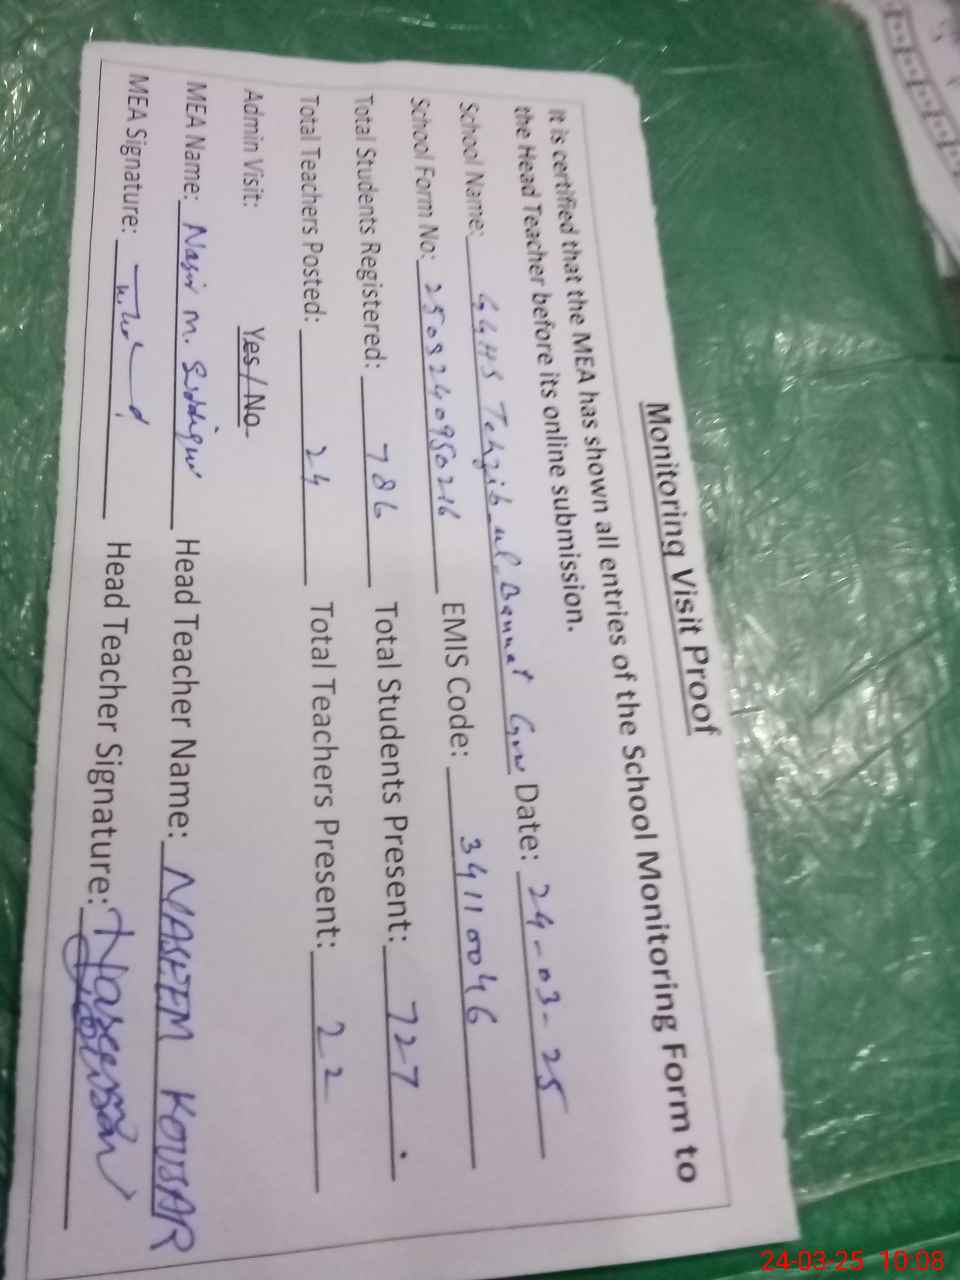 Monitoring Visit Proof
It is certified that the MEA has shown all entries of the School Monitoring Form to
the Head Teacher before its online submission.
School Name: GGHS Tehzib ul Bannat Date: 24-03-25
School Form No: 2503240950216 EMIS Code: 34110046
Total Students Registered: 786 Total Students Present: 727
Total Teachers Posted: 24 Total Teachers Present: 22
Admin Visit: Yes / No
MEA Name: Nasir M. Siddique Head Teacher Name: NASEEM KOUSAR
MEA Signature: Head Teacher Signature:
24-03-25 10:08